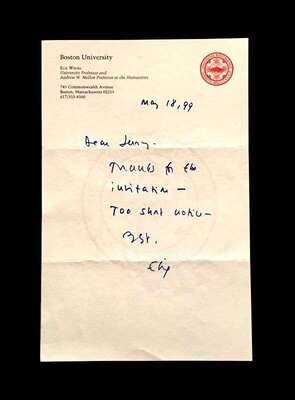 Boston University
Elie Wiesel
University Professor and
Andrew W. Mellon Professor in the Humanities
745 Commonwealth Avenue
Boston, Massachusetts 02215
617/353-4566
May 18, 99
Dear Jerry.
Thanks for the
invitation —
Too short notice —
Best.
Elie